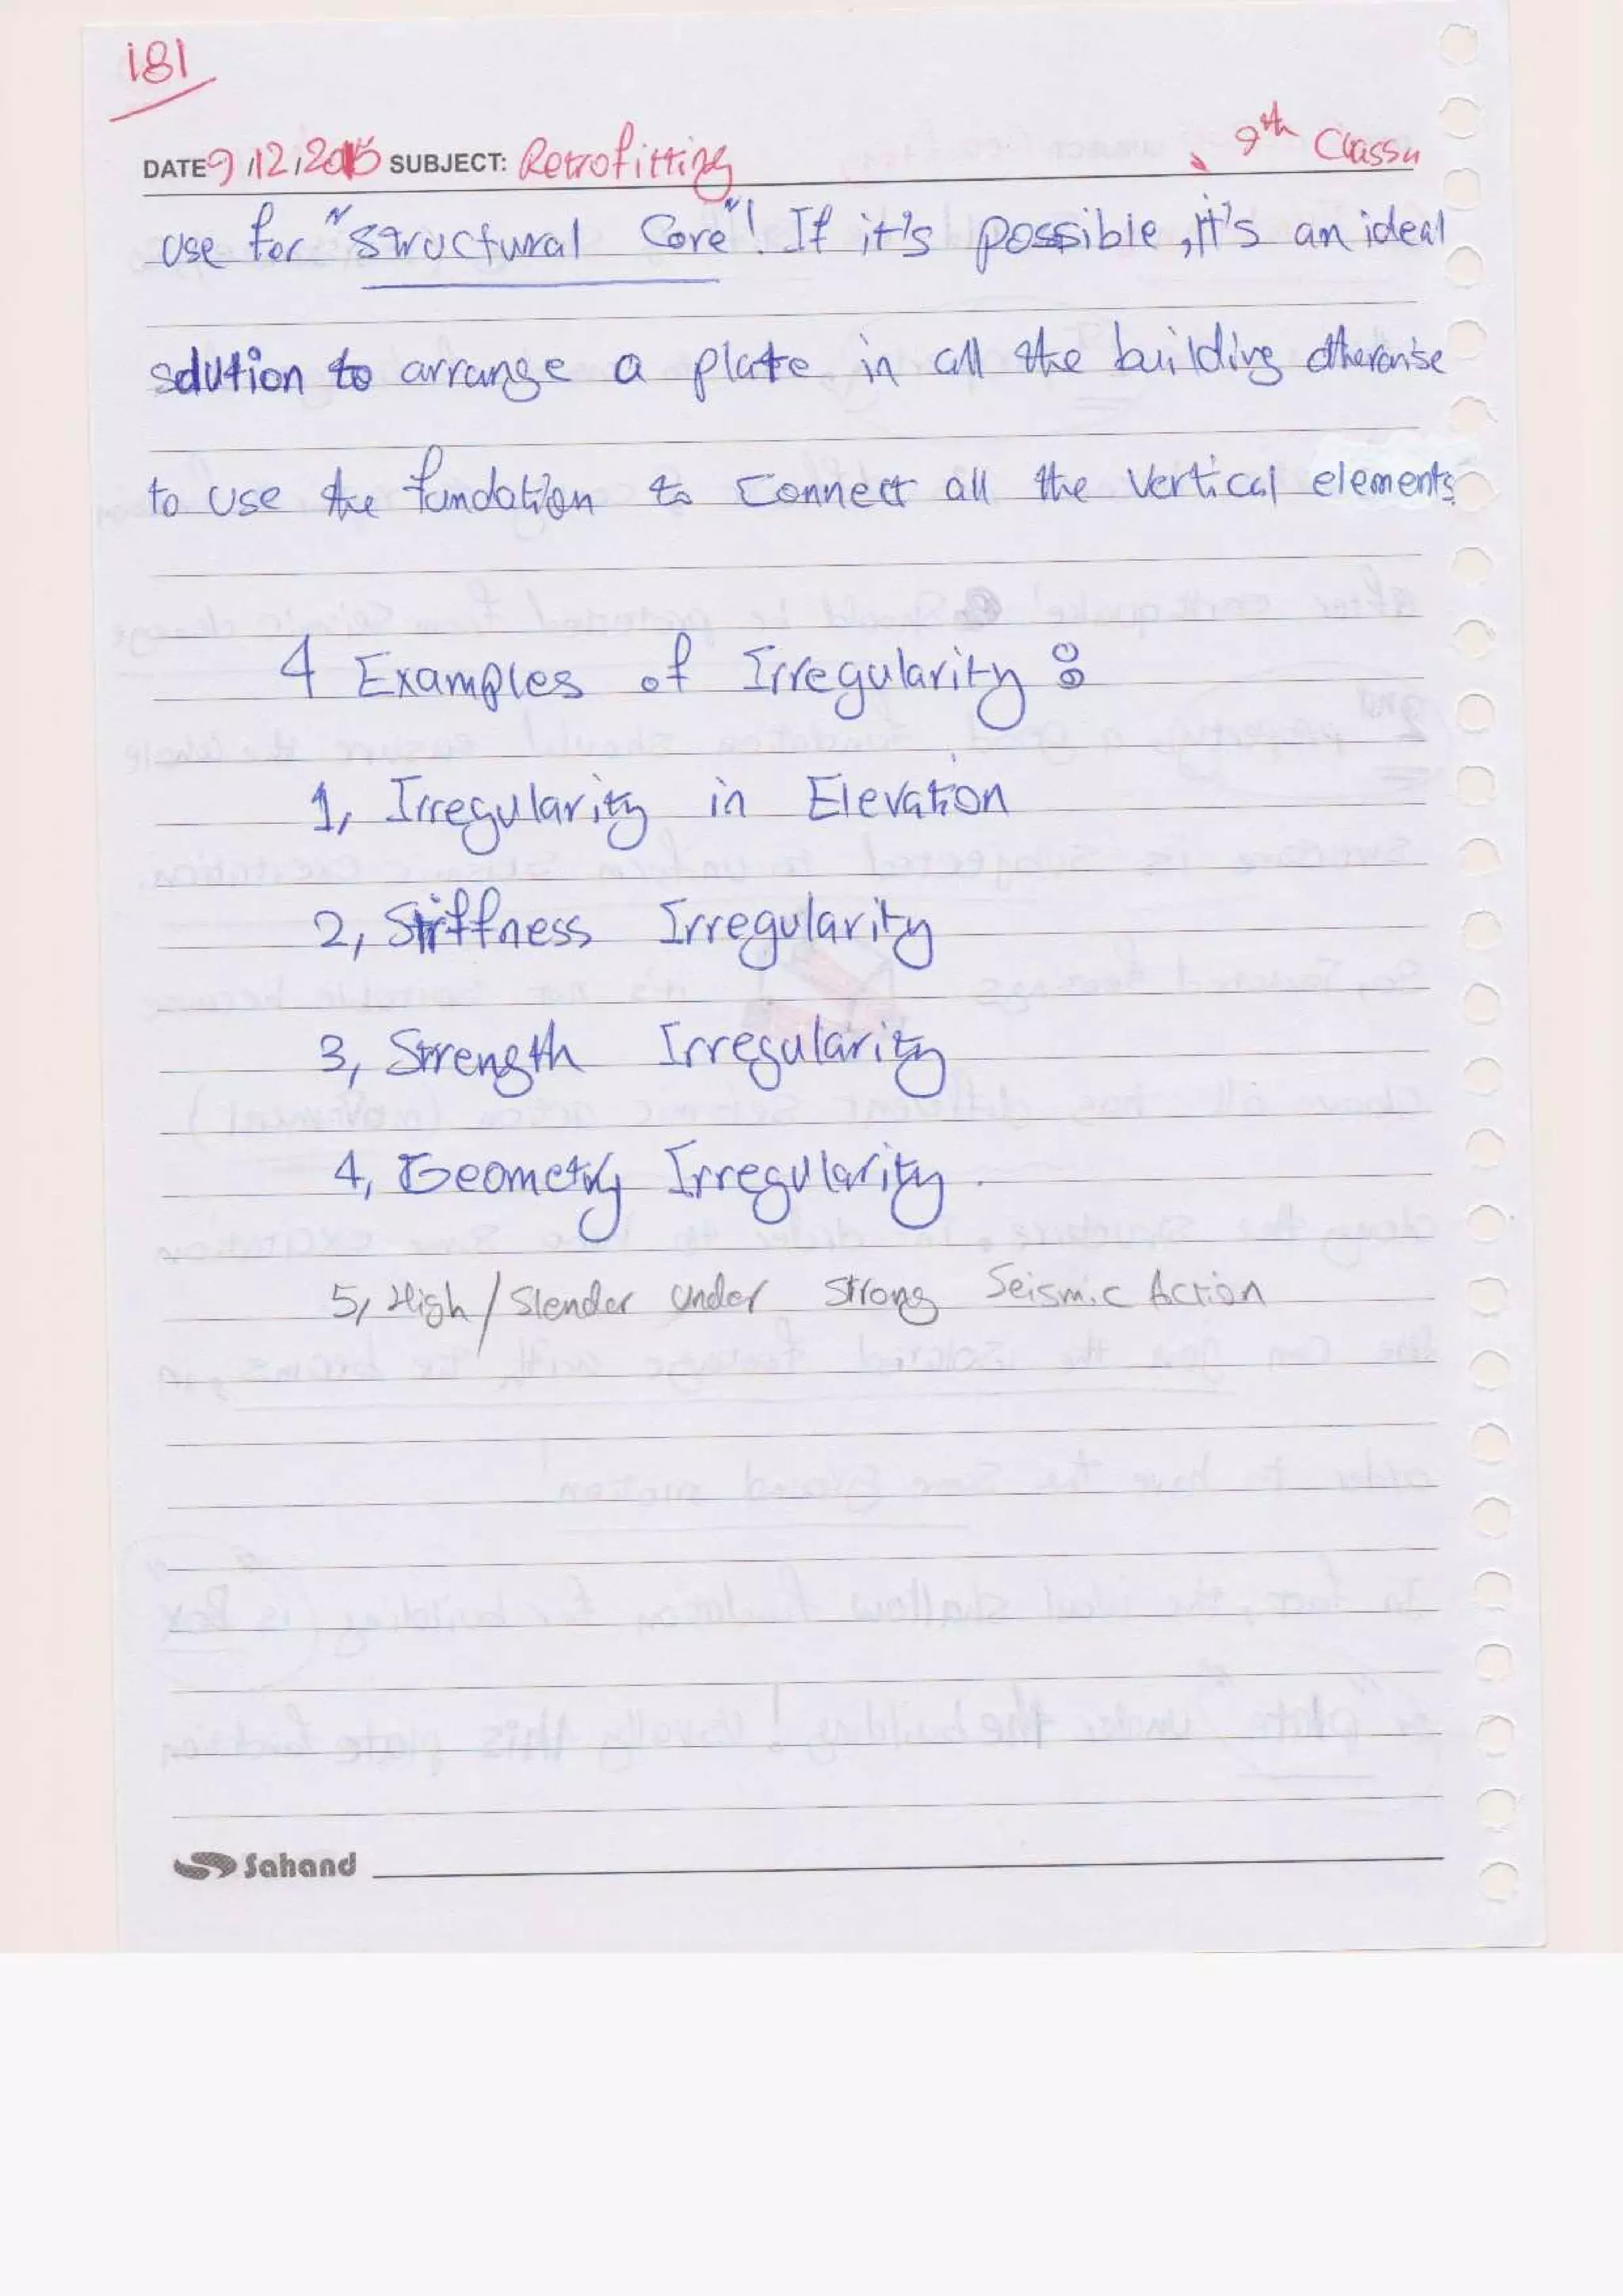 181
DATE 9/12/2015 SUBJECT: Retrofitting 9th Class
use for "structural Core"! If it's possible, it's an ideal
solution to arrange a plate in all the building otherwise
to use the fundation to connect all the vertical elements
4 Examples of Irregularity:
1, Irregularity in Elevation
2, Stiffness Irregularity
3, Strength Irregularity
4, Geometry Irregularity.
5, High / Slender under strong Seismic Action
Sahand